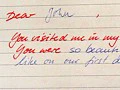 Dear John,
You visited me in my
You were so beautif
like on our first d